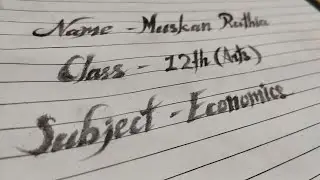 Name - Muskan Ruthia
Class - 12th (Arts)
Subject - Economics